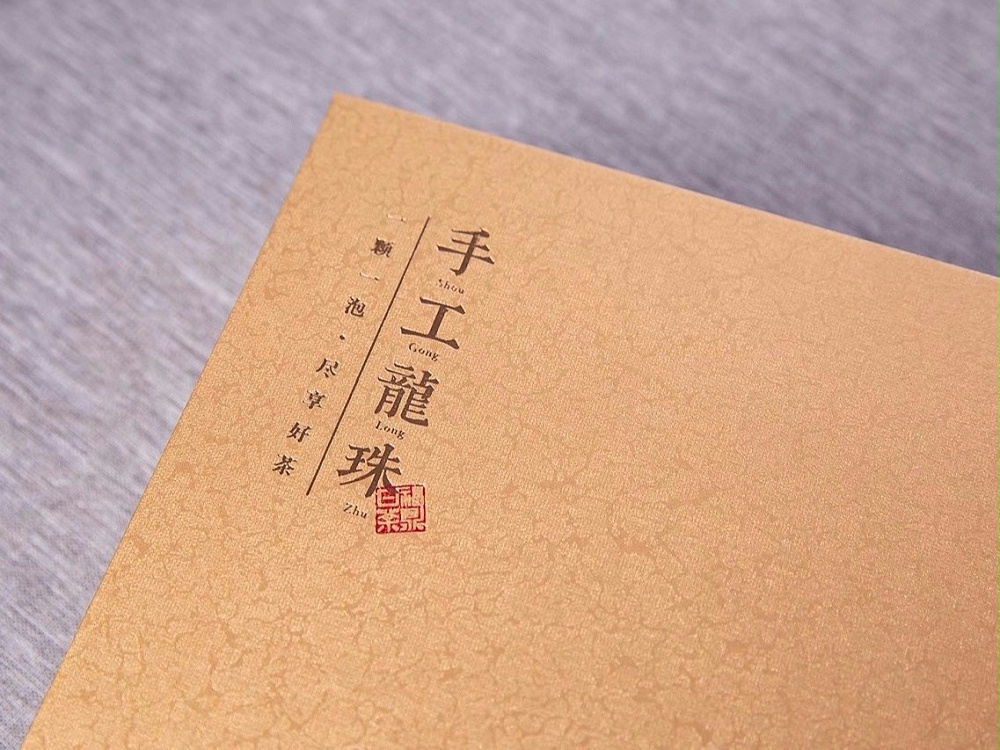 手工龍珠
Shou Gong Long Zhu
一颗一泡·尽享好茶
福泉白茶